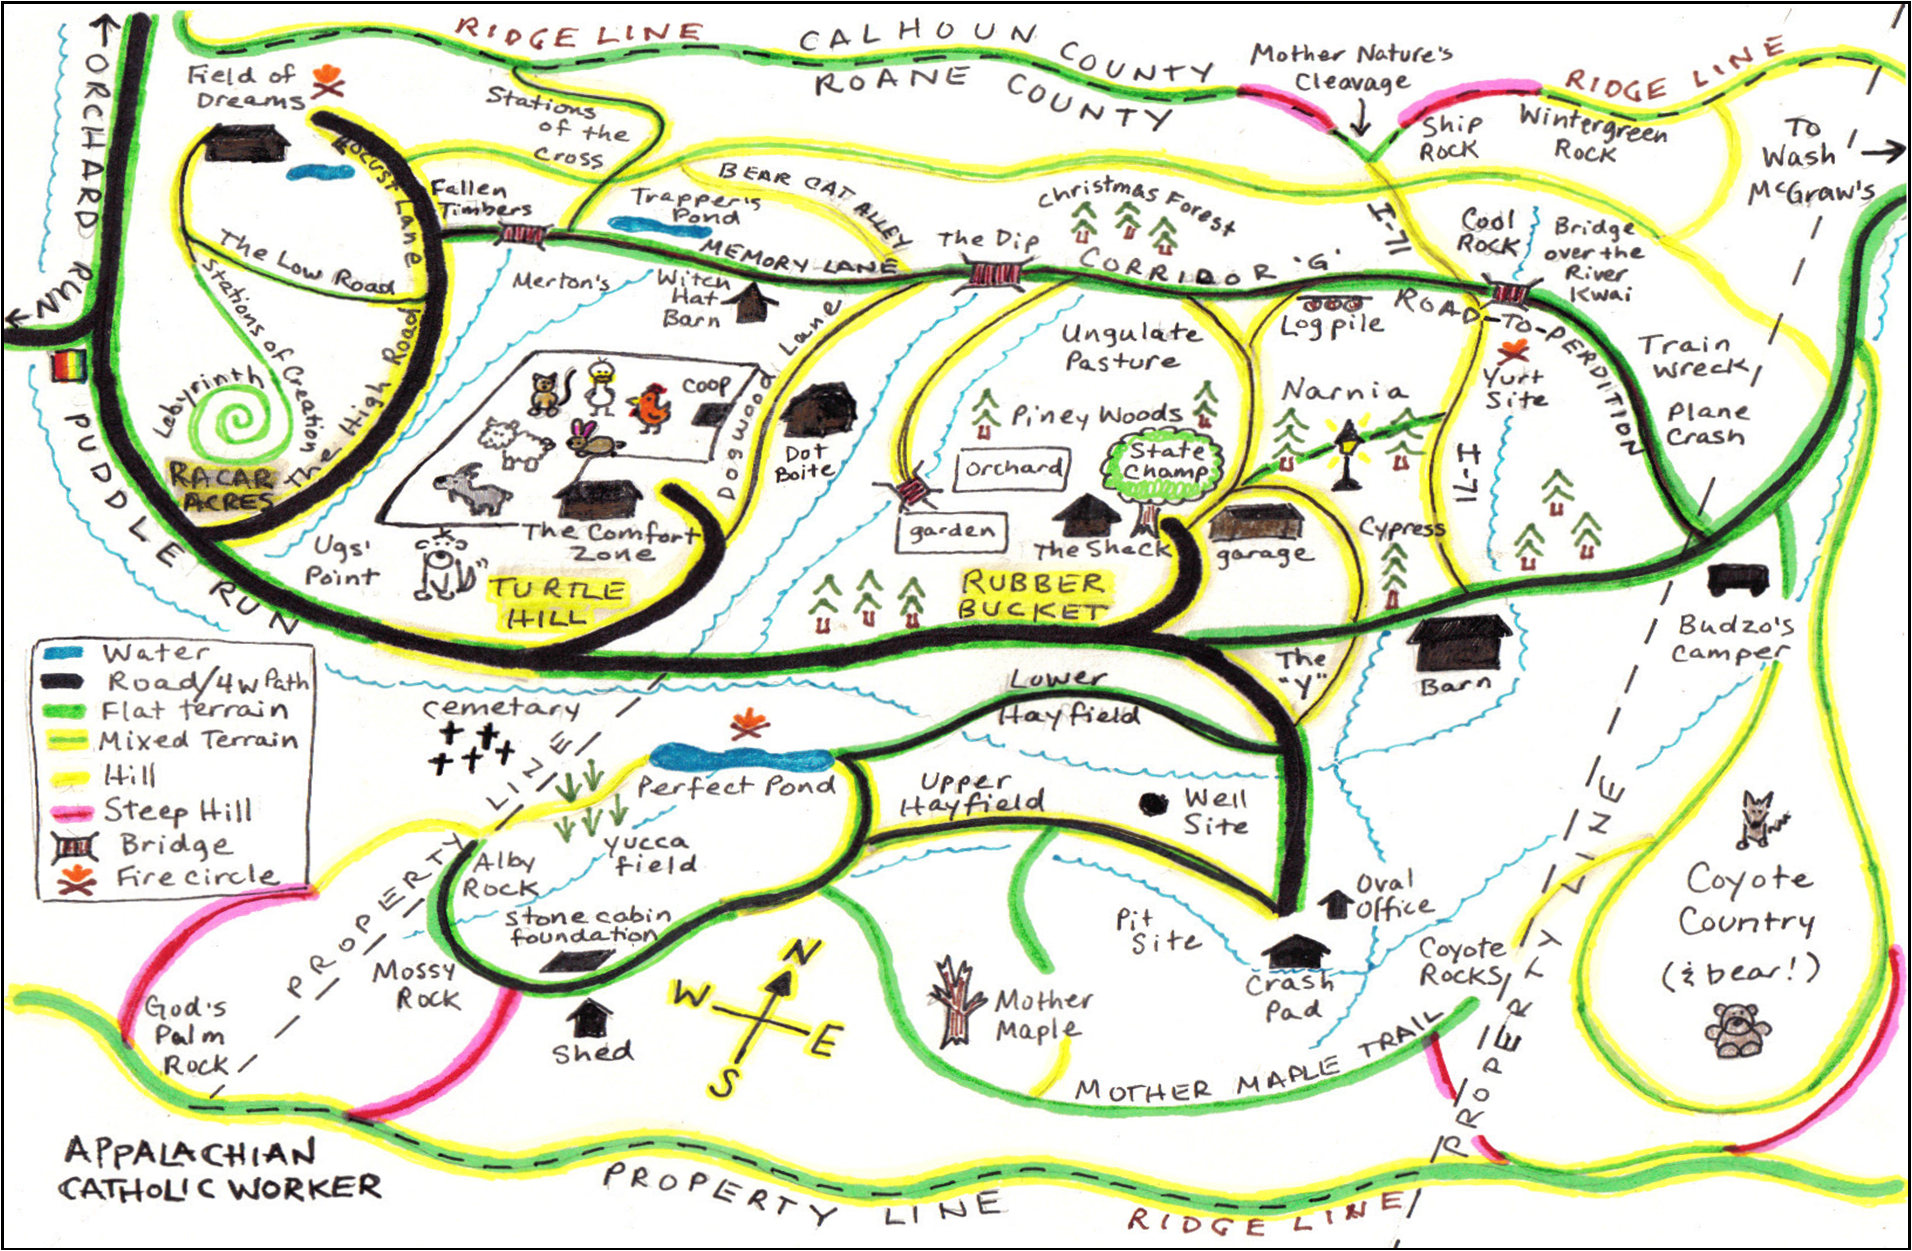 RIDGE LINE
CALHOUN COUNTY
ROANE COUNTY
Mother Nature's
Cleavage
RIDGE LINE
ORCHARD RUN
Field of
Dreams
Stations
of the
Cross
Ship
Rock
Wintergreen
Rock
To
Wash
McGraw's
Locust Lane
Fallen
Timbers
Trapper's
Pond
BEAR CAT ALLEY
Christmas Forest
I-71
Cool
Rock
Bridge
over the
River
Kwai
The Low Road
Merton's
MEMORY LANE
The Dip
CORRIDOR 'G'
ROAD-TO-PERDITION
Witch
Hat
Barn
Log pile
Stations of Creation
The High Road
Dogwood Lane
Ungulate
Pasture
Yurt
Site
Train
Wreck/
Plane
Crash
Labyrinth
COOP
Narnia
Piney Woods
Dot
Boite
Orchard
State
Champ
I-71
RACAR
ACRES
PUDDLE RUN
Ugs'
Point
The Comfort
Zone
garden
The Shack
garage
Cypress
TURTLE
HILL
RUBBER
BUCKET
Budzo's
Camper
Water
Road/4W Path
Flat terrain
Mixed Terrain
Hill
Steep Hill
Bridge
Fire circle
Cemetary
Lower
Hayfield
The
"Y"
Barn
PROPERTY LINE
Perfect Pond
Upper
Hayfield
Well
Site
Yucca
field
Alby
Rock
Stone cabin
foundation
Mossy
Rock
Pit
Site
Oval
Office
Crash
Pad
Coyote
Rocks
PROPERTY LINE
Coyote
Country
(& bear!)
God's
Palm
Rock
Shed
N
W
E
S
Mother
Maple
MOTHER MAPLE TRAIL
PROPERTY
APPALACHIAN
CATHOLIC WORKER
PROPERTY LINE
RIDGE LINE